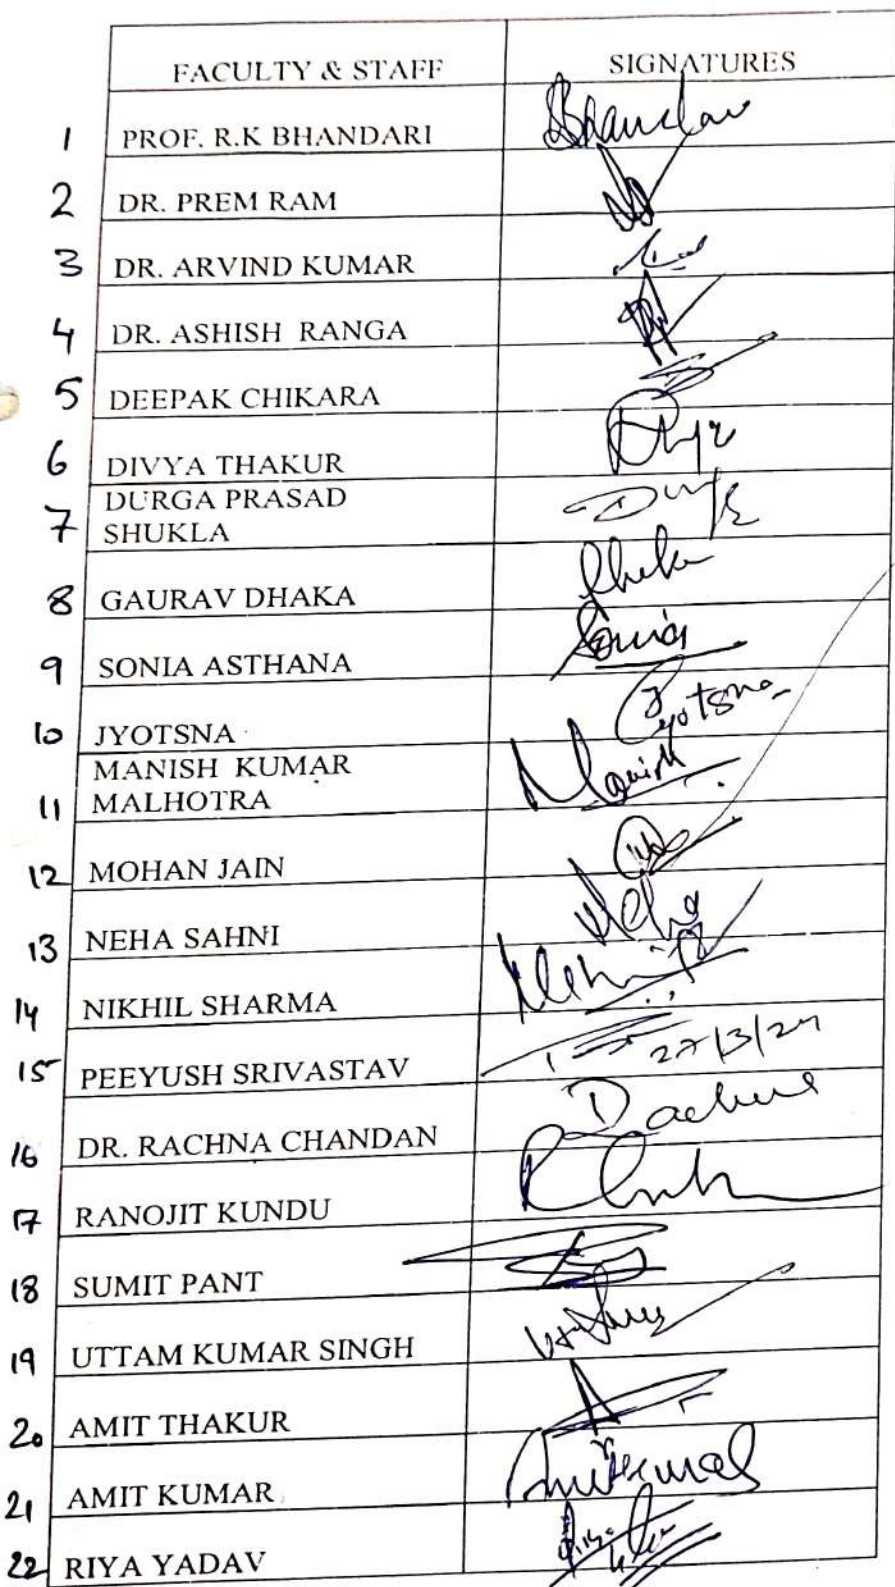 FACULTY & STAFF SIGNATURES
1 PROF. R.K BHANDARI
2 DR. PREM RAM
3 DR. ARVIND KUMAR
4 DR. ASHISH RANGA
5 DEEPAK CHIKARA
6 DIVYA THAKUR
DURGA PRASAD
7 SHUKLA
8 GAURAV DHAKA
9 SONIA ASTHANA Sonia
10 JYOTSNA Jyotsna
MANISH KUMAR Manish
11 MALHOTRA
12 MOHAN JAIN
13 NEHA SAHNI Neha
14 NIKHIL SHARMA
15 PEEYUSH SRIVASTAV 27/3/24
16 DR. RACHNA CHANDAN Rachna
17 RANOJIT KUNDU
18 SUMIT PANT
19 UTTAM KUMAR SINGH
20 AMIT THAKUR
21 AMIT KUMAR
22 RIYA YADAV